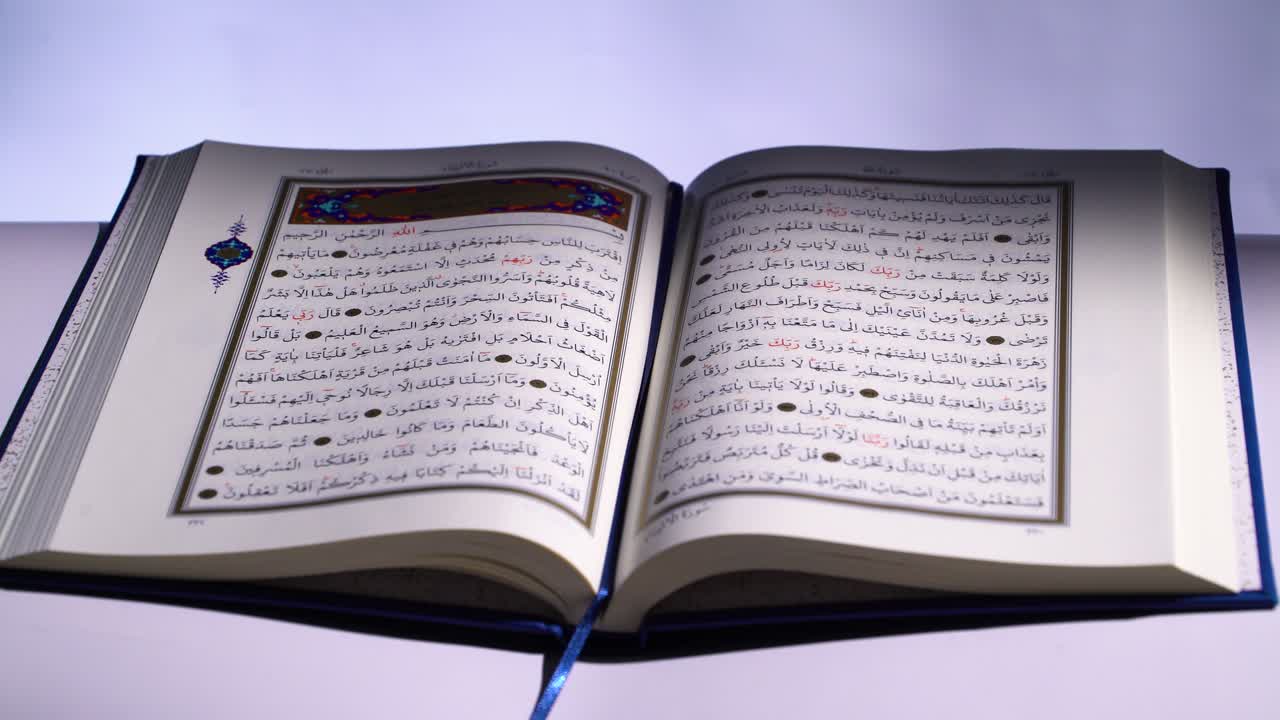 سورة طه
قَالَ كَذٰلِكَ اَتَتْكَ اٰيَاتُنَا فَنَسٖيتَهَا وَكَذٰلِكَ الْيَوْمَ تُنْسٰى وَكَذٰلِكَ
نَجْزٖى مَنْ اَسْرَفَ وَلَمْ يُؤْمِنْ بِاٰيَاتِ رَبِّهٖ وَلَعَذَابُ الْاٰخِرَةِ اَشَدُّ
وَاَبْقٰى اَفَلَمْ يَهْدِ لَهُمْ كَمْ اَهْلَكْنَا قَبْلَهُمْ مِنَ الْقُرُونِ
يَمْشُونَ فٖى مَسَاكِنِهِمْ اِنَّ فٖى ذٰلِكَ لَاٰيَاتٍ لِاُولِى النُّهٰى
وَلَوْلَا كَلِمَةٌ سَبَقَتْ مِنْ رَبِّكَ لَكَانَ لِزَامًا وَاَجَلٌ مُسَمًّى
فَاصْبِرْ عَلٰى مَا يَقُولُونَ وَسَبِّحْ بِحَمْدِ رَبِّكَ قَبْلَ طُلُوعِ الشَّمْسِ
وَقَبْلَ غُرُوبِهَا وَمِنْ اٰنَآئِ الَّيْلِ فَسَبِّحْ وَاَطْرَافَ النَّهَارِ لَعَلَّكَ
تَرْضٰى وَلَا تَمُدَّنَّ عَيْنَيْكَ اِلٰى مَا مَتَّعْنَا بِهٖٓ اَزْوَاجًا مِنْهُمْ
زَهْرَةَ الْحَيٰوةِ الدُّنْيَا لِنَفْتِنَهُمْ فٖيهِ وَرِزْقُ رَبِّكَ خَيْرٌ وَاَبْقٰى
وَأْمُرْ اَهْلَكَ بِالصَّلٰوةِ وَاصْطَبِرْ عَلَيْهَا لَا نَسْـَٔلُكَ رِزْقًا نَحْنُ
نَرْزُقُكَ وَالْعَاقِبَةُ لِلتَّقْوٰى وَقَالُوا لَوْلَا يَأْتٖينَا بِاٰيَةٍ مِنْ رَبِّهٖ
اَوَلَمْ تَأْتِهِمْ بَيِّنَةُ مَا فِى الصُّحُفِ الْاُولٰى وَلَوْ اَنَّٓا اَهْلَكْنَاهُمْ
بِعَذَابٍ مِنْ قَبْلِهٖ لَقَالُوا رَبَّنَا لَوْلَٓا اَرْسَلْتَ اِلَيْنَا رَسُولًا فَنَتَّبِعَ
اٰيَاتِكَ مِنْ قَبْلِ اَنْ نَذِلَّ وَنَخْزٰى قُلْ كُلٌّ مُتَرَبِّصٌ فَتَرَبَّصُوا
فَسَتَعْلَمُونَ مَنْ اَصْحَابُ الصِّرَاطِ السَّوِىِّ وَمَنِ اهْتَدٰى
سورة الانبياء
سورة الانبياء
بِسْمِ اللّٰهِ الرَّحْمٰنِ الرَّحٖيمِ
اِقْتَرَبَ لِلنَّاسِ حِسَابُهُمْ وَهُمْ فٖى غَفْلَةٍ مُعْرِضُونَ مَا يَأْتٖيهِمْ
مِنْ ذِكْرٍ مِنْ رَبِّهِمْ مُحْدَثٍ اِلَّا اسْتَمَعُوهُ وَهُمْ يَلْعَبُونَ
لَاهِيَةً قُلُوبُهُمْ وَاَسَرُّوا النَّجْوٰى الَّذٖينَ ظَلَمُوا هَلْ هٰذَٓا اِلَّا بَشَرٌ
مِثْلُكُمْ اَفَتَأْتُونَ السِّحْرَ وَاَنْتُمْ تُبْصِرُونَ قَالَ رَبّٖى يَعْلَمُ
الْقَوْلَ فِى السَّمَٓاءِ وَالْاَرْضِ وَهُوَ السَّمٖيعُ الْعَلٖيمُ بَلْ قَالُٓوا
اَضْغَاثُ اَحْلَامٍ بَلِ افْتَرٰيهُ بَلْ هُوَ شَاعِرٌ فَلْيَأْتِنَا بِاٰيَةٍ كَمَٓا
اُرْسِلَ الْاَوَّلُونَ مَٓا اٰمَنَتْ قَبْلَهُمْ مِنْ قَرْيَةٍ اَهْلَكْنَاهَا اَفَهُمْ
يُؤْمِنُونَ وَمَٓا اَرْسَلْنَا قَبْلَكَ اِلَّا رِجَالًا نُوحٖٓى اِلَيْهِمْ فَسْـَٔلُٓوا
اَهْلَ الذِّكْرِ اِنْ كُنْتُمْ لَا تَعْلَمُونَ وَمَا جَعَلْنَاهُمْ جَسَدًا
لَا يَأْكُلُونَ الطَّعَامَ وَمَا كَانُوا خَالِدٖينَ ثُمَّ صَدَقْنَاهُمُ
الْوَعْدَ فَاَنْجَيْنَاهُمْ وَمَنْ نَشَٓاءُ وَاَهْلَكْنَا الْمُسْرِفٖينَ
لَقَدْ اَنْزَلْنَٓا اِلَيْكُمْ كِتَابًا فٖيهِ ذِكْرُكُمْ اَفَلَا تَعْقِلُونَ